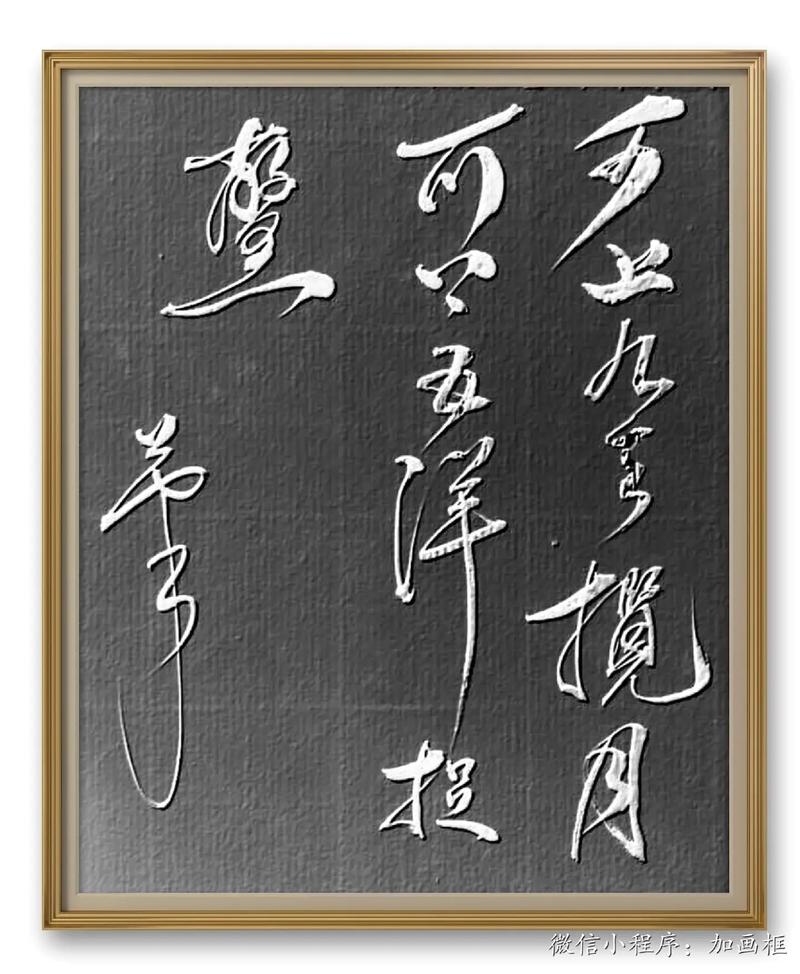 可上九霄攬月
可下五洋捉
鱉
微信小程序：加画框